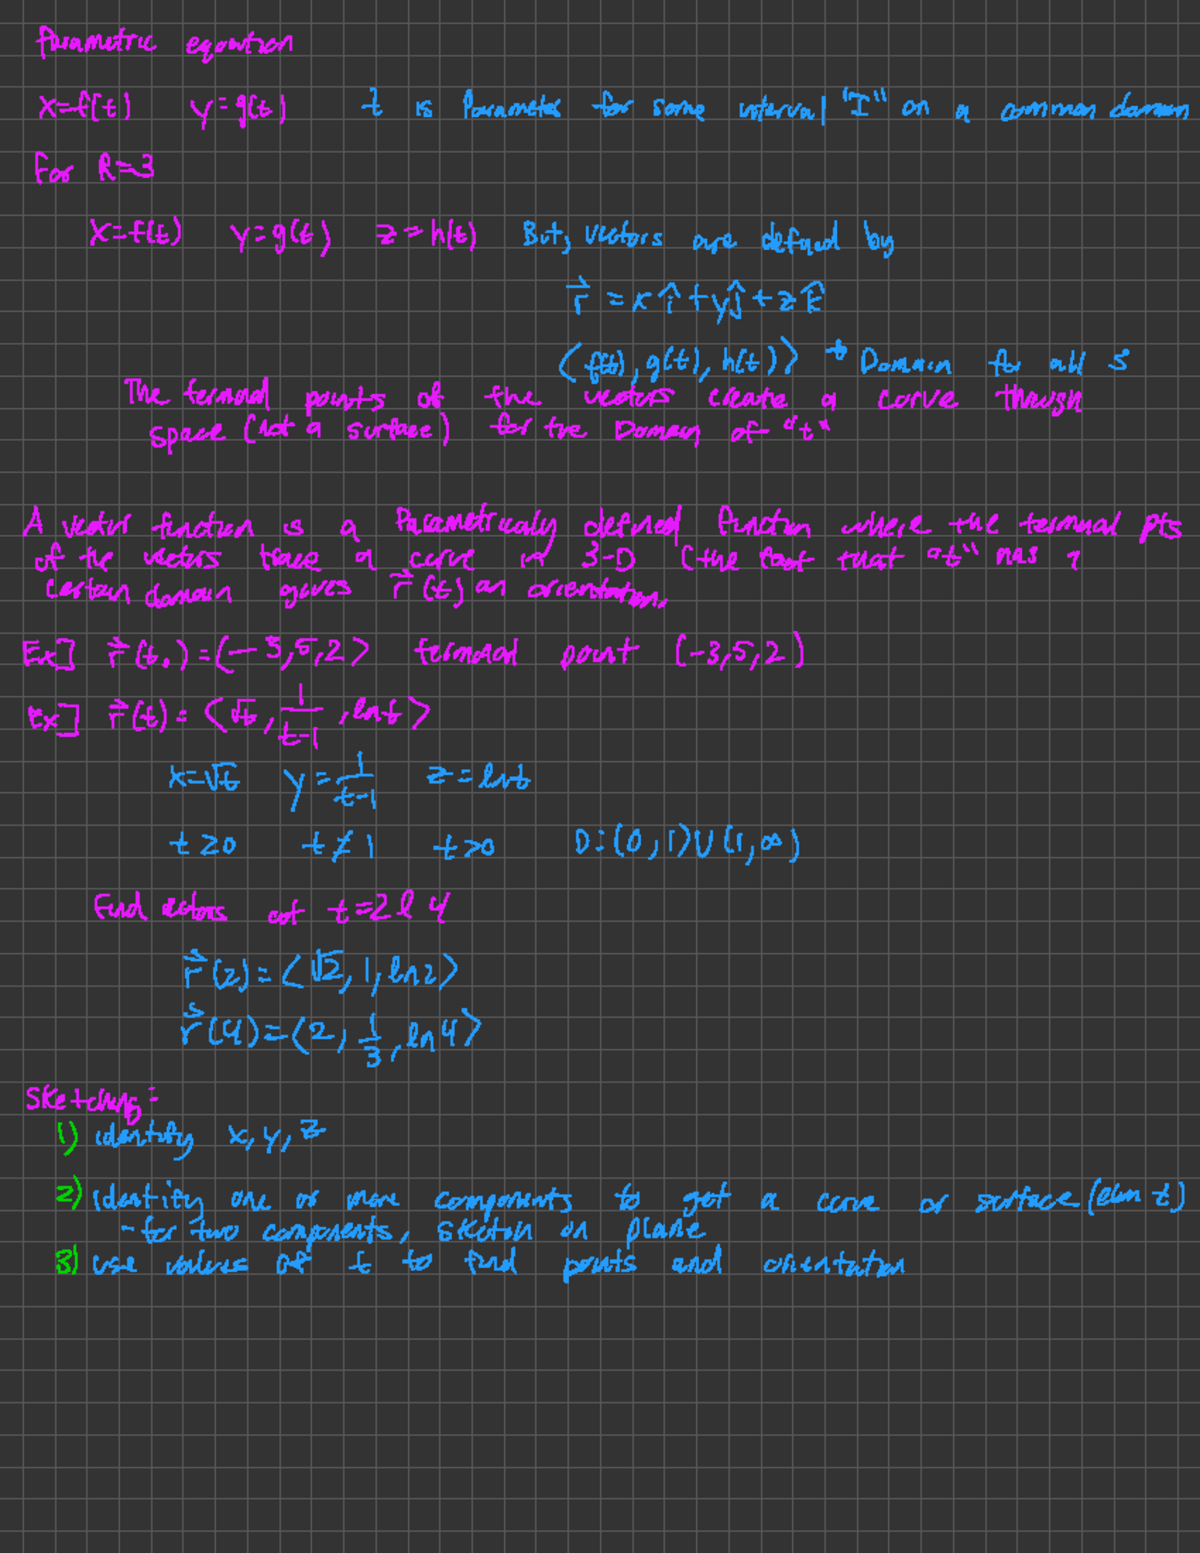 Parametric equation
x=f(t) y=g(t) t is Parameter for some interval "I" on a common domain
For R=3
x=f(t) y=g(t) z=h(t) But, vectors are defined by
r⃗ = x î + y ĵ + z k̂
⟨f(t), g(t), h(t)⟩ → Domain for all 3
The terminal points of the vectors create a curve through
space (not a surface) for the Domain of "t"
A vector function is a Parametrically defined function where the terminal pts
of the vectors trace a curve in 3-D (the fact that "t" has a
certain domain gives r⃗(t) an orientation.
Ex] r⃗(t₀)=⟨-3,5,2⟩ terminal point (-3,5,2)
Ex] r⃗(t)=⟨√t, 1/(t-1), ln t⟩
x=√t y=1/(t-1) z=ln t
t≥0 t≠1 t>0 D:(0,1)∪(1,∞)
Find vectors at t=2 & 4
r⃗(2)=⟨√2, 1, ln 2⟩
r⃗(4)=⟨2, 1/3, ln 4⟩
Sketching:
1) identify x, y, z
2) identify one or more components to get a curve or surface (elim t)
- for two components, sketch on plane
3) use values of t to find points and orientation